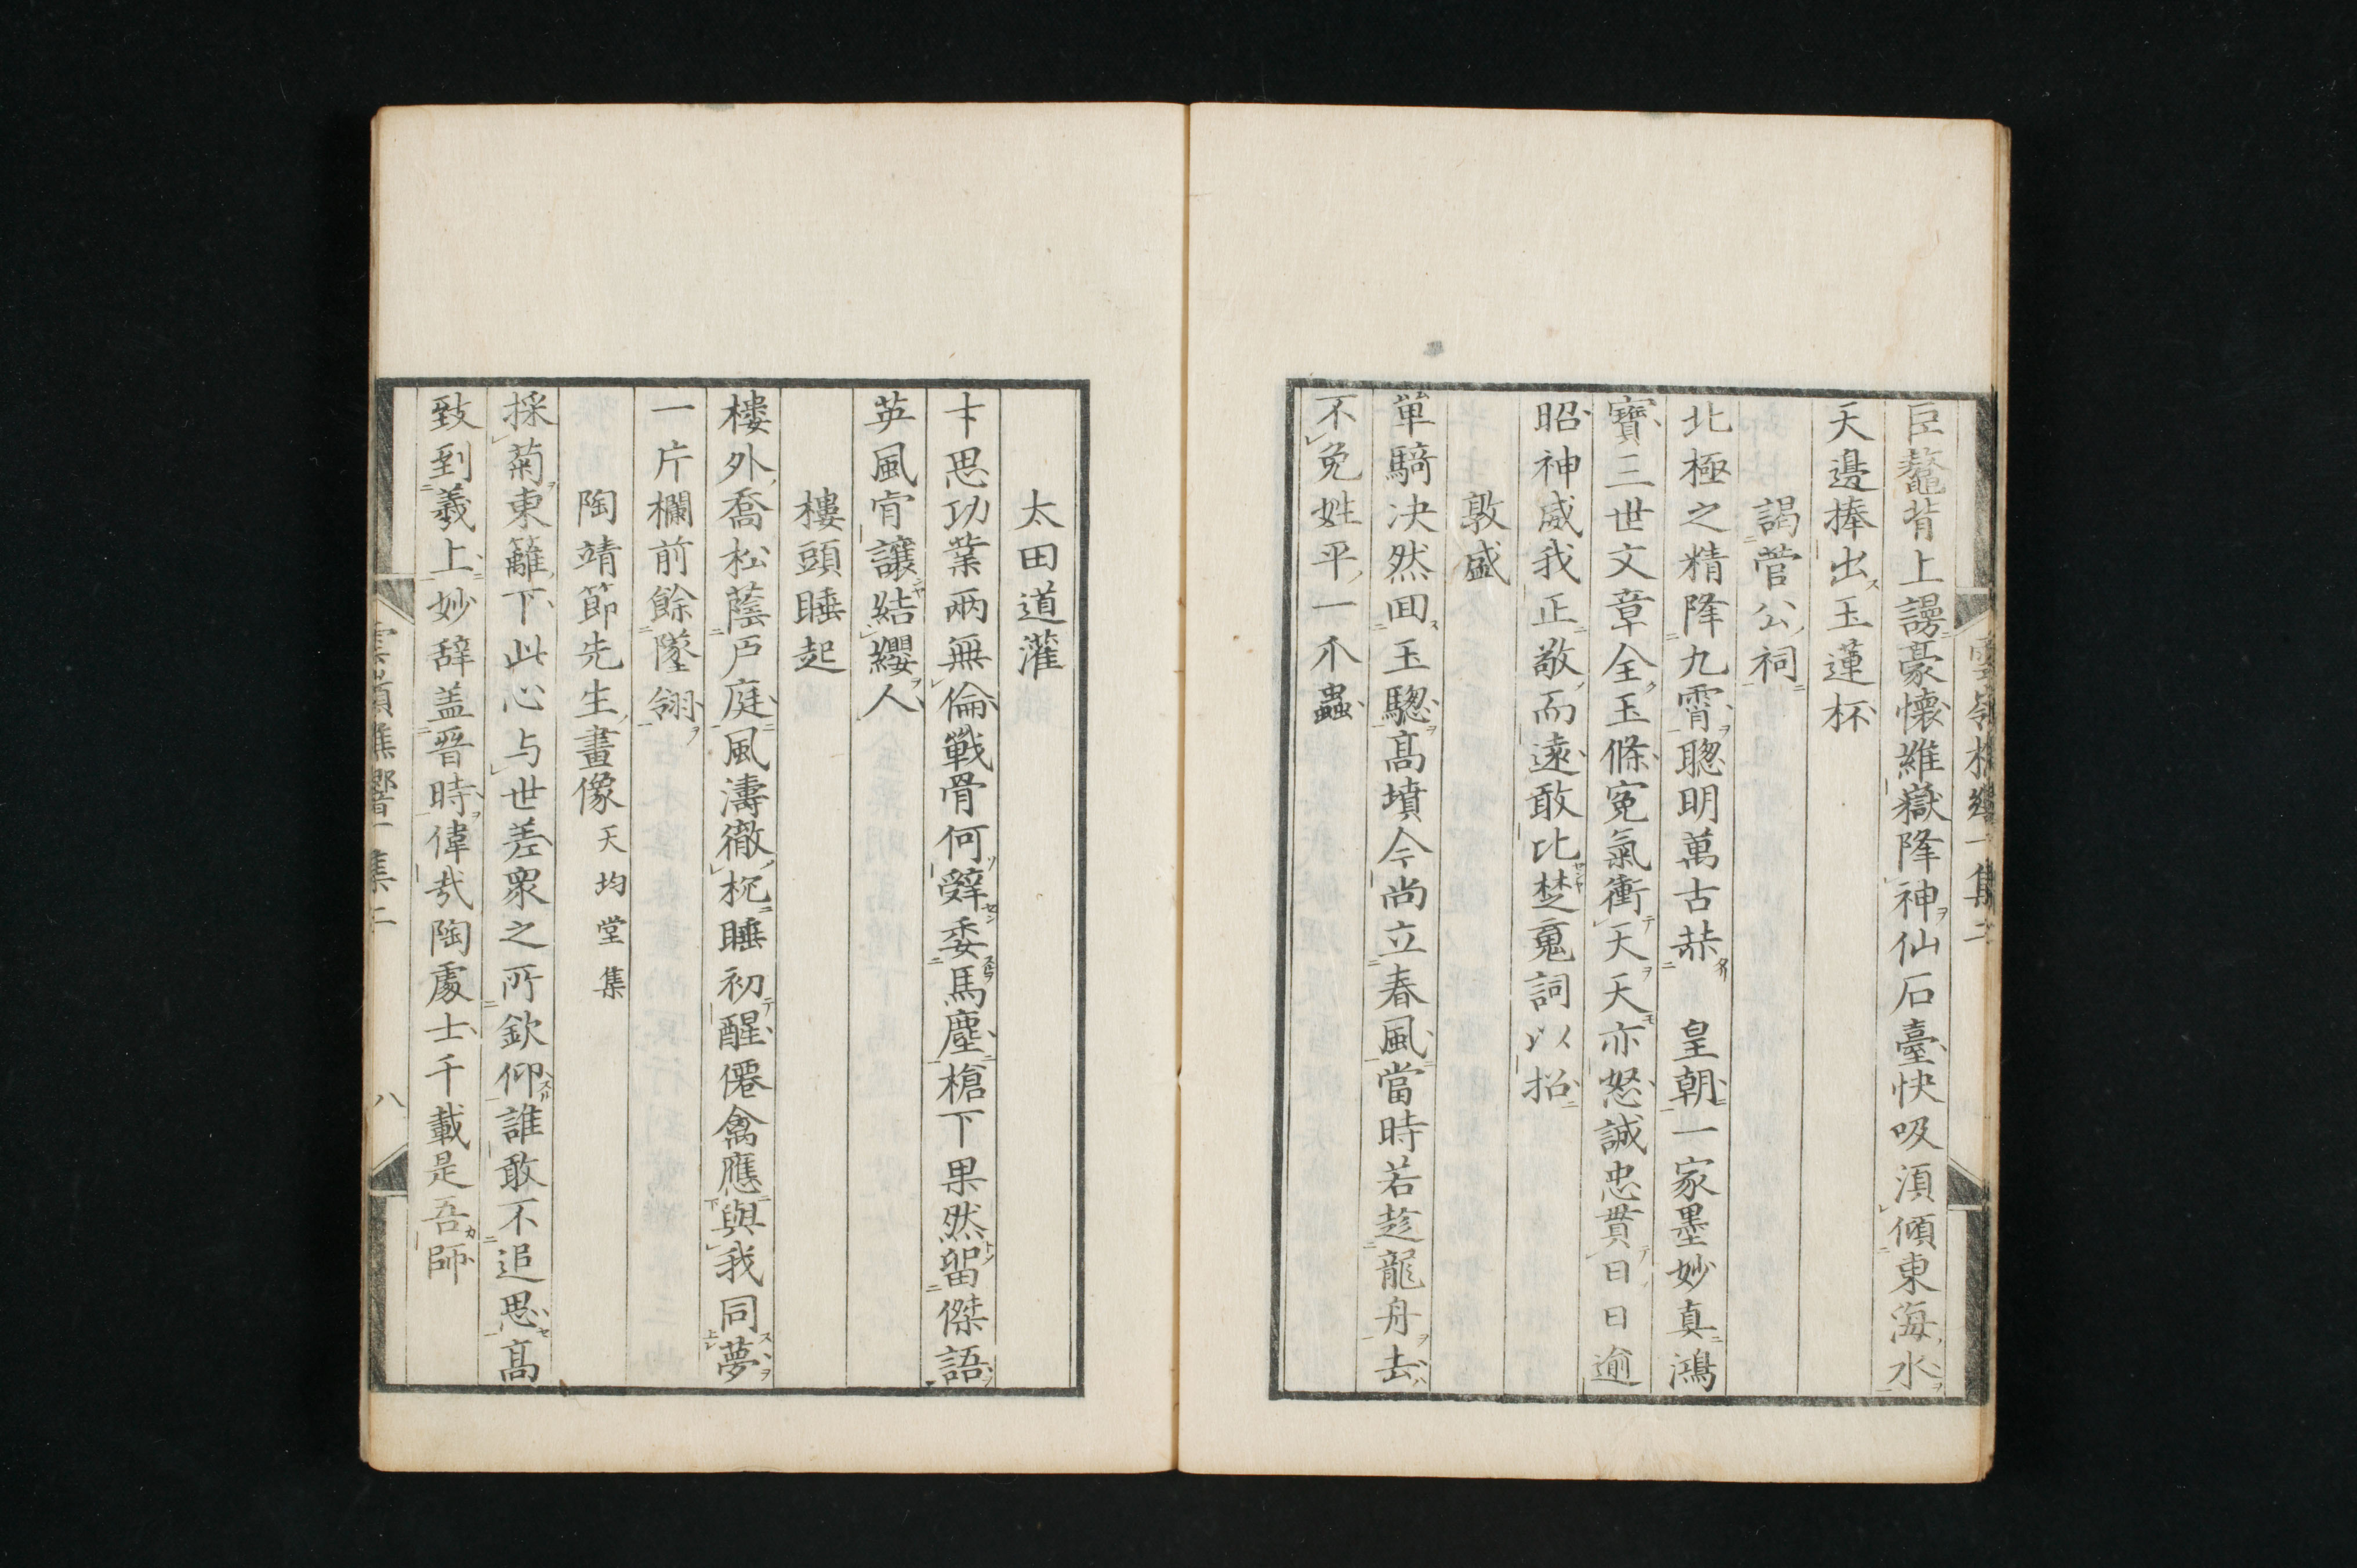 巨鼇背上謾豪懷維嶽降神仙石臺快吸湏傾東海水
天邊捧出玉蓮杯
謁菅公祠
北極之精降九霄聰明萬古恭皇朝一家墨妙真鴻
寶三世文章全玉條冤氣衝天天亦怒誠忠貫日日逾
昭神威我正敬而遠敢比楚䰟詞以招
敦盛
單騎决然囬玉驄高墳今尚立春風當時若趁龍舟去
不免姓平一介蟲
太田道灌
十思功業兩無倫戰骨何辭委馬塵槍下果然留傑語
英風肯讓結纓人
樓頭睡起
樓外喬松蔭戸庭風濤徹枕睡初醒僊禽應與我同夢
一片欄前餘墜翎
陶靖節先生畫像 天均堂集
採菊東籬下此心与世差衆之所欽仰誰敢不追思高
致到羲上妙辞盖晋時偉哉陶處士千載是吾師
雲嶺樵響一集二
八